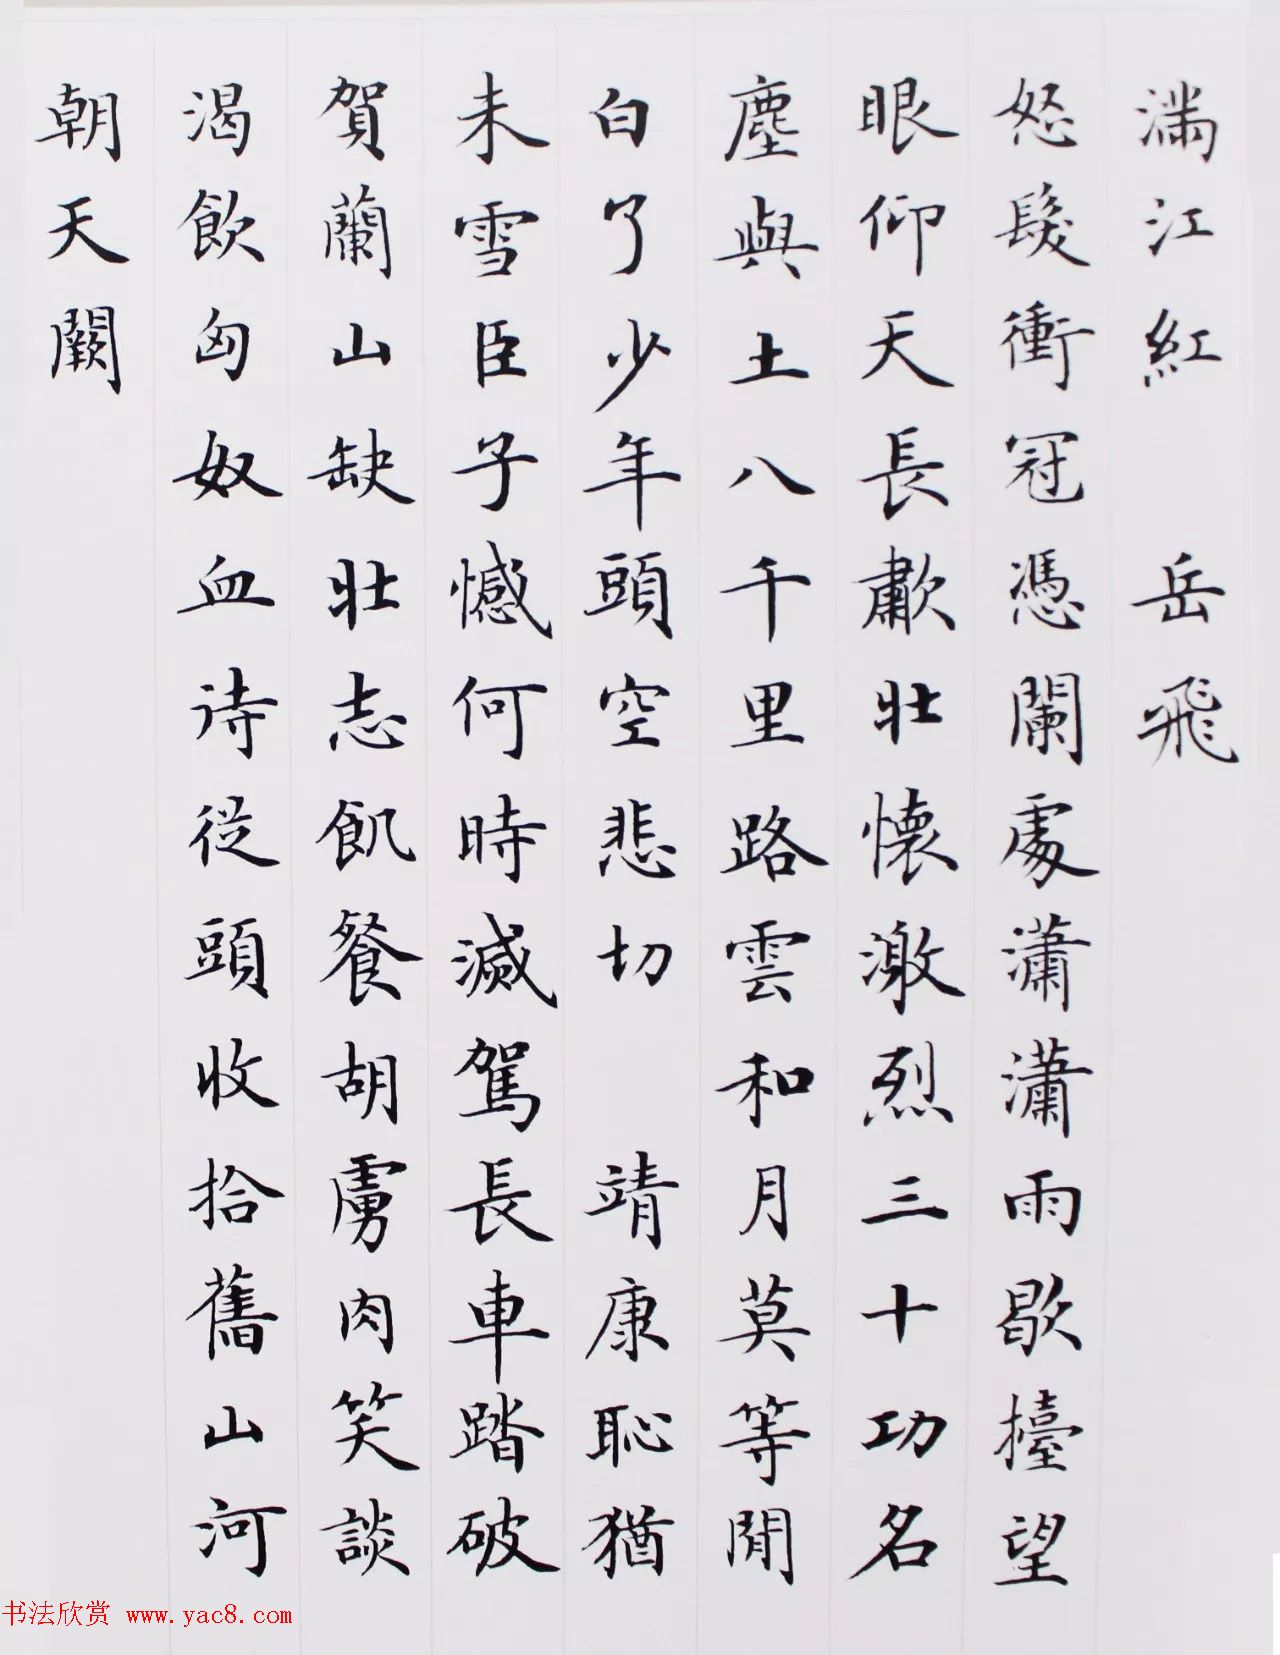 滿江紅 岳飛
怒髮衝冠憑闌處瀟瀟雨歇擡望
眼仰天長歗壯懷激烈三十功名
塵與土八千里路雲和月莫等閒
白了少年頭空悲切 靖康恥猶
未雪臣子憾何時滅駕長車踏破
賀蘭山缺壯志飢餐胡虜肉笑談
渴飲匈奴血待從頭收拾舊山河
朝天闕
书法欣赏 www.yac8.com